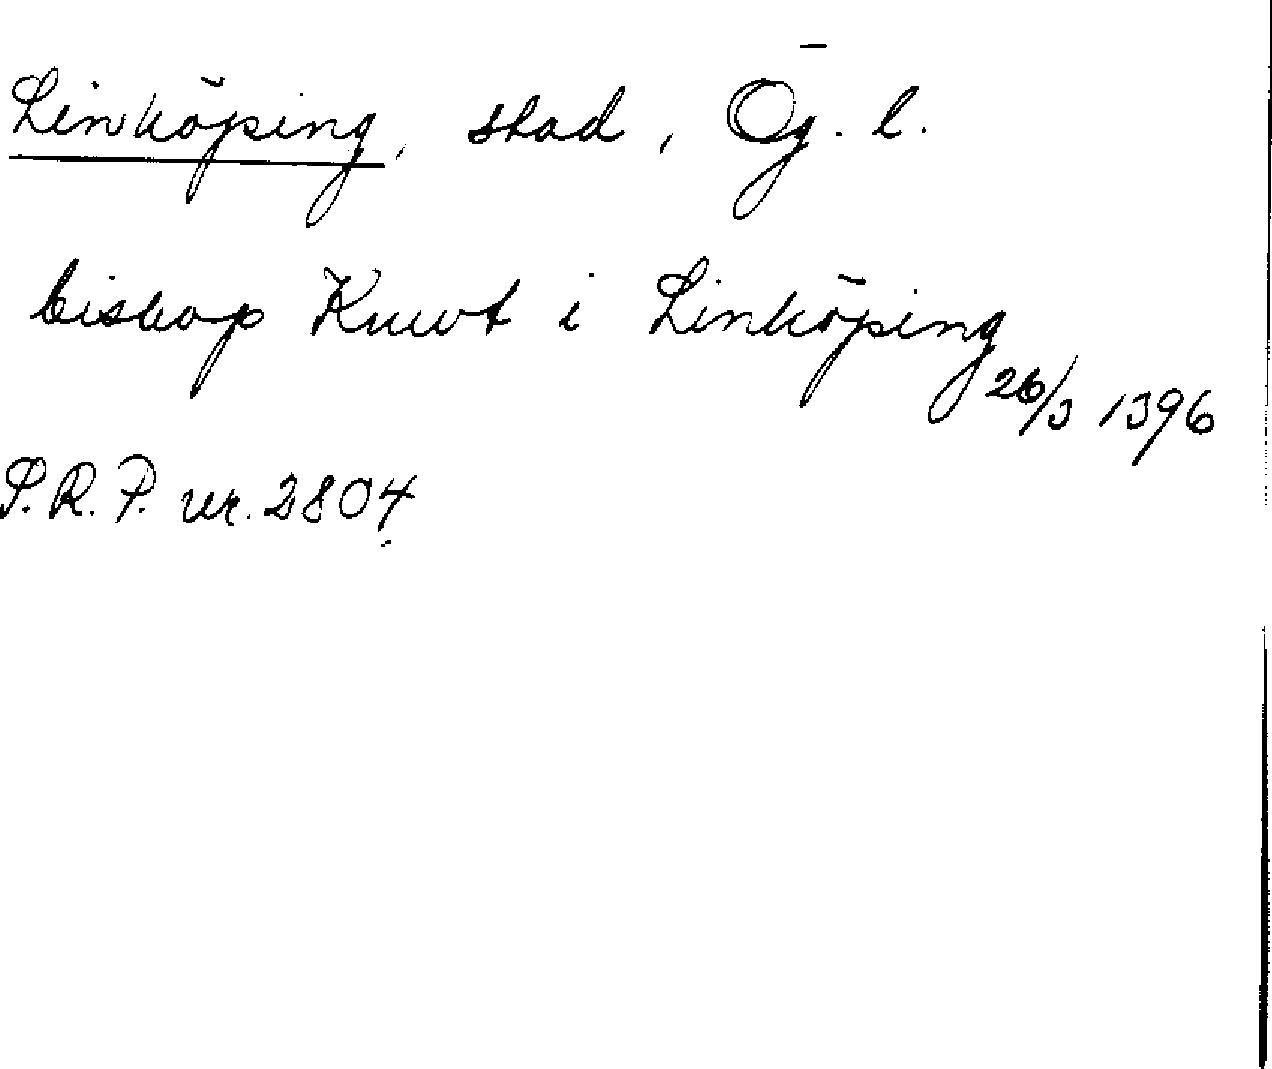 Linköping, stad, Ög. l.
biskop Knut i Linköping
26/3 1396
S.R.P. nr. 2804